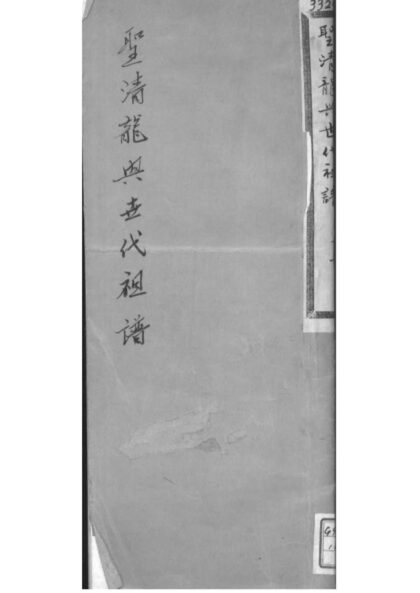 聖清龍興世代祖譜
332
聖清龍興世代祖譜